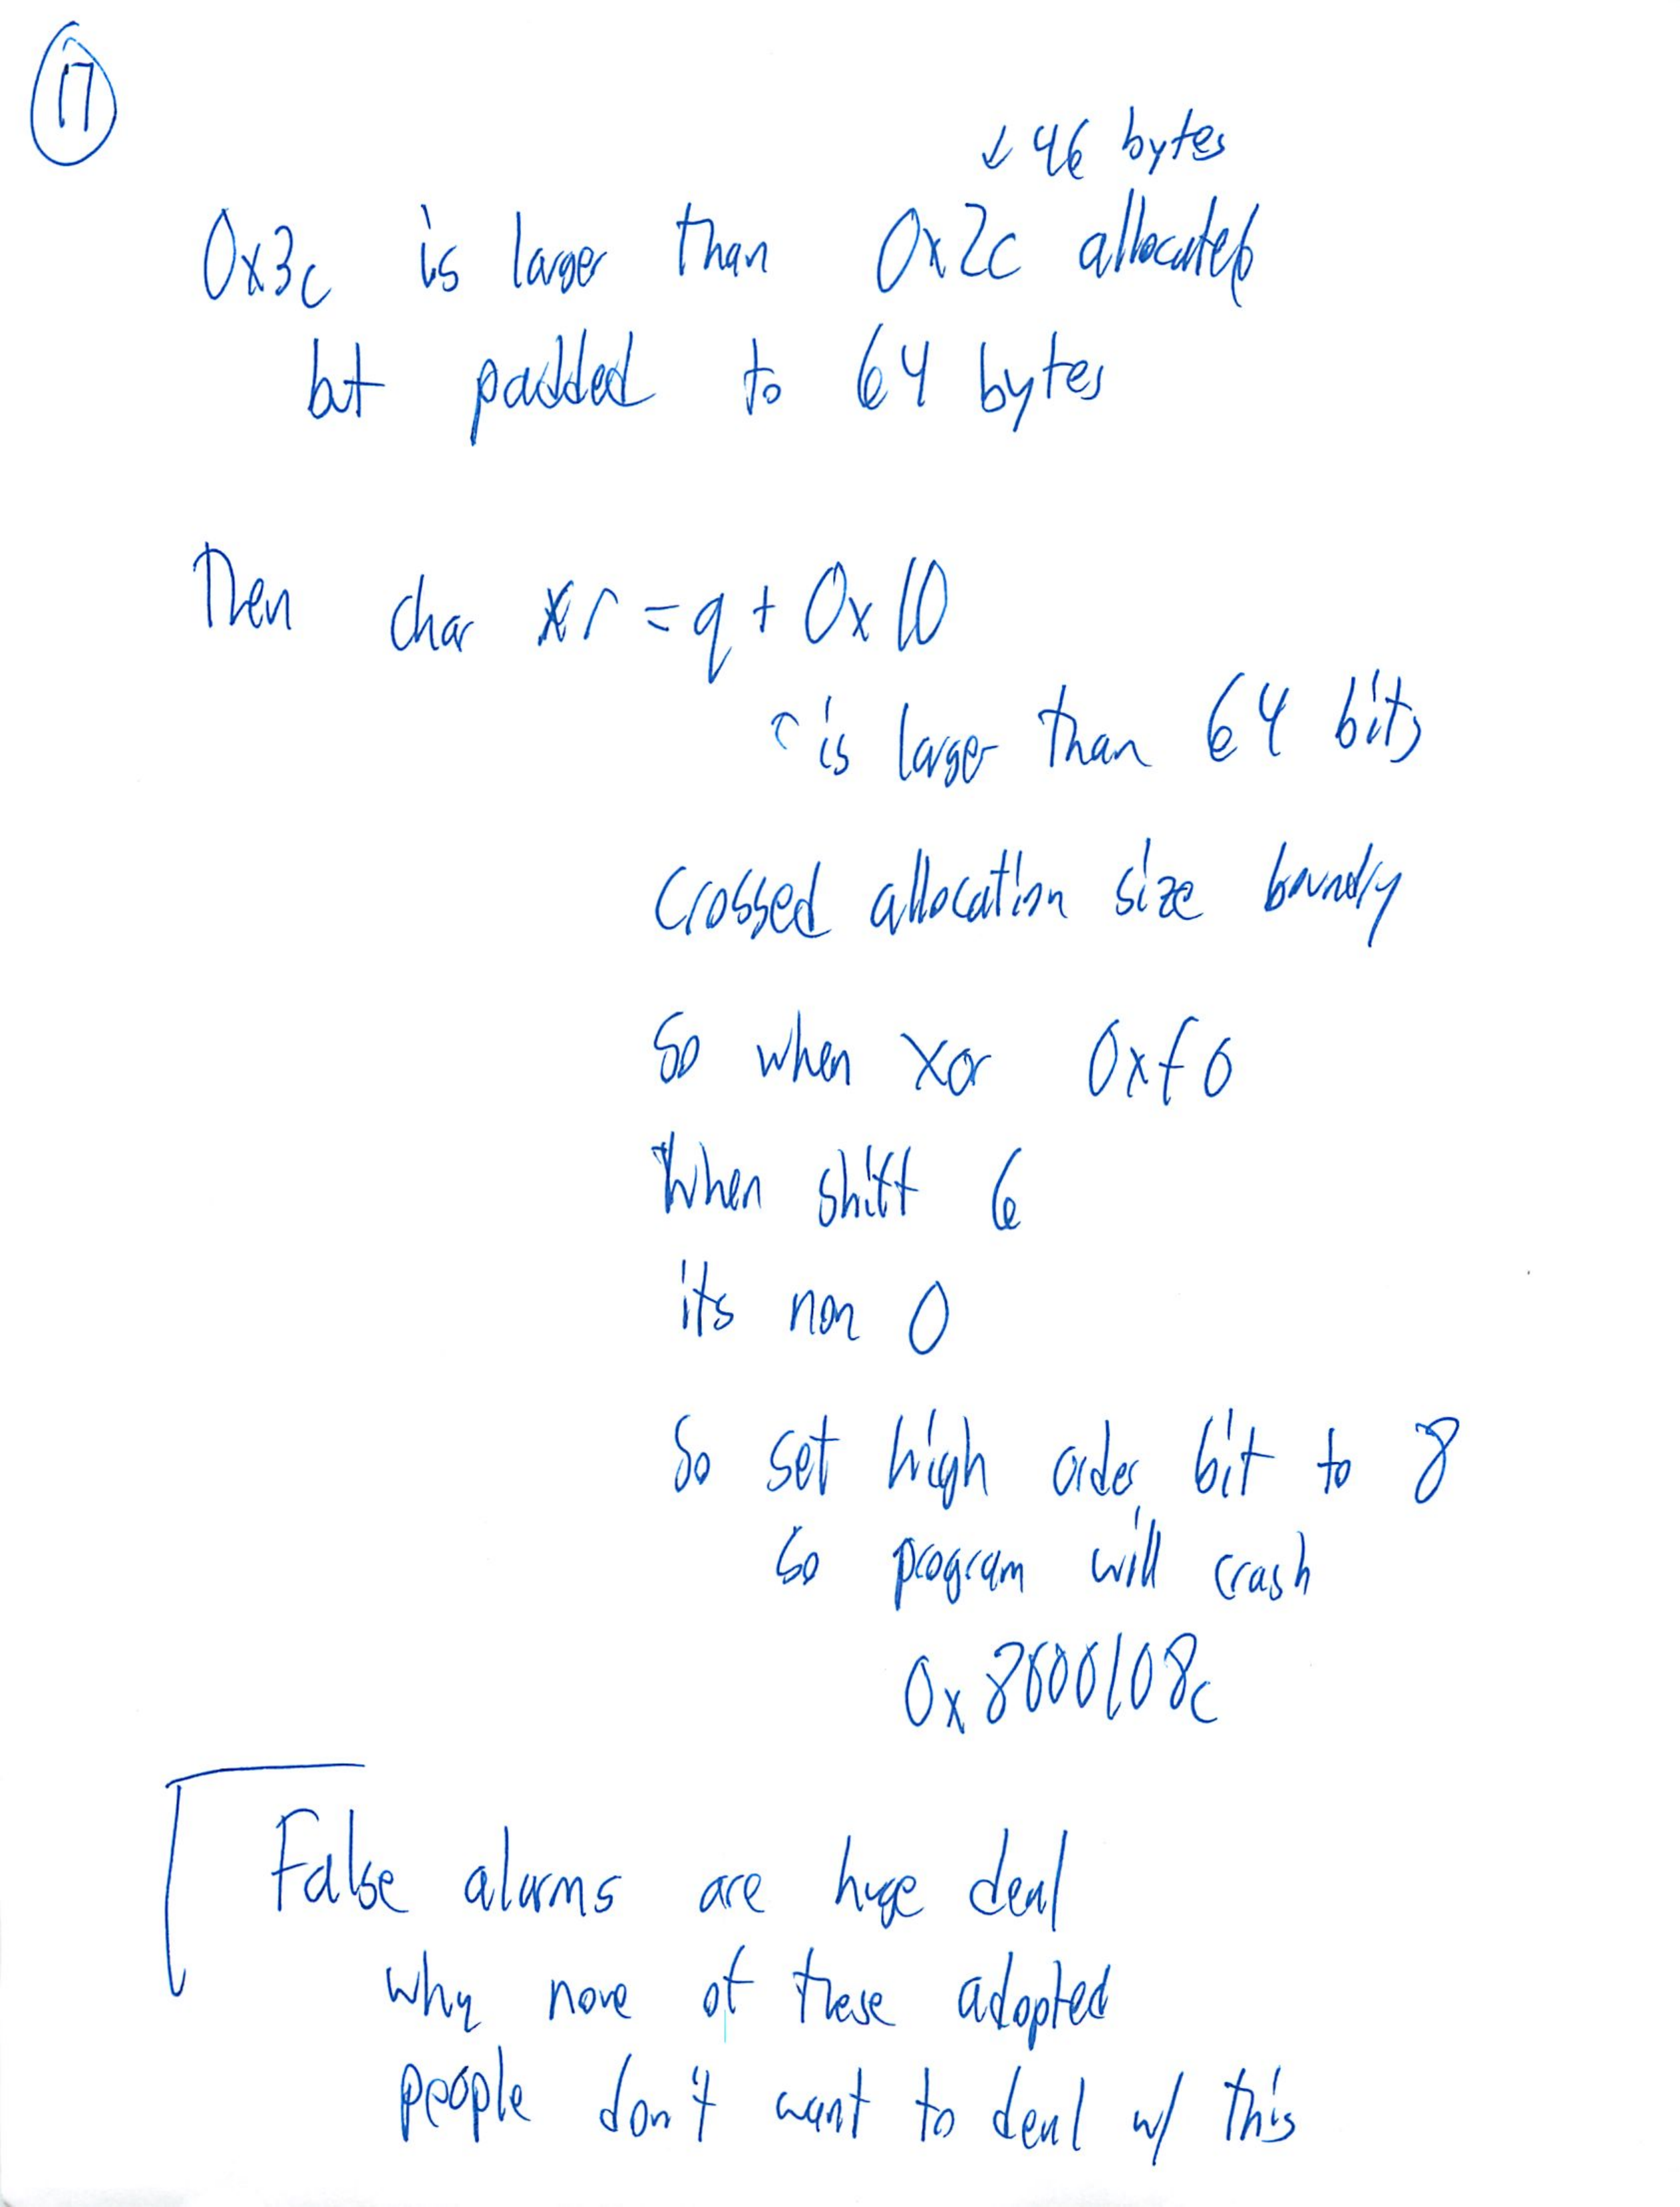 17
↓ 46 bytes
0x3c is larger than 0x2c allocated
but padded to 64 bytes
Then char *r = q + 0x10
↑ is larger than 64 bits
crossed allocation size boundry
So when xor 0xf0
When shift 6
its non 0
So set high order bit to 8
So program will crash
0x8000108c
False alarms are huge deal
why none of these adopted
people don't want to deal w/ this